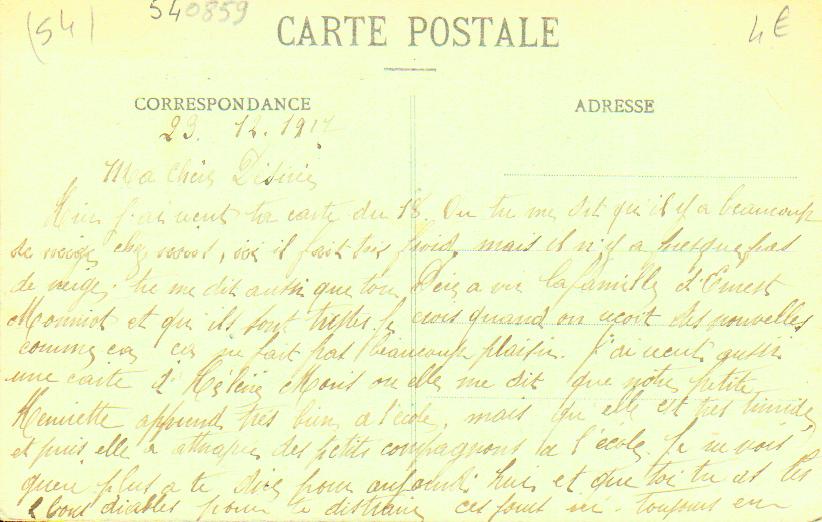 (54)
540859
4€
CARTE POSTALE
CORRESPONDANCE
ADRESSE
23. 12. 1917
Ma chère Désirée
Hier j'ai reçut ta carte du 18. Ou tu me dit qu'il y a beaucoup
de neige chez vous, ici il fait très froid, mais il n'y a presque pas
de neige. tu me dit aussi que ton Père a vu la famille d'Ernest
Monniot et qu'ils sont tristes. Je crois quand on reçoit des nouvelles
comme ça ça ne fait pas beaucoup plaisir. J'ai reçut aussi
une carte d'Hélène ou elle me dit que notre petite
Henriette apprend très bien a l'école, mais qu'elle est très timide
et puis elle a attrapé des petits compagnons de l'école. Je ne vois
guère plus a te dire pour aujourd'hui et que toi tu as les
2 bons diables pour te distraire ces jours ici. toujours en